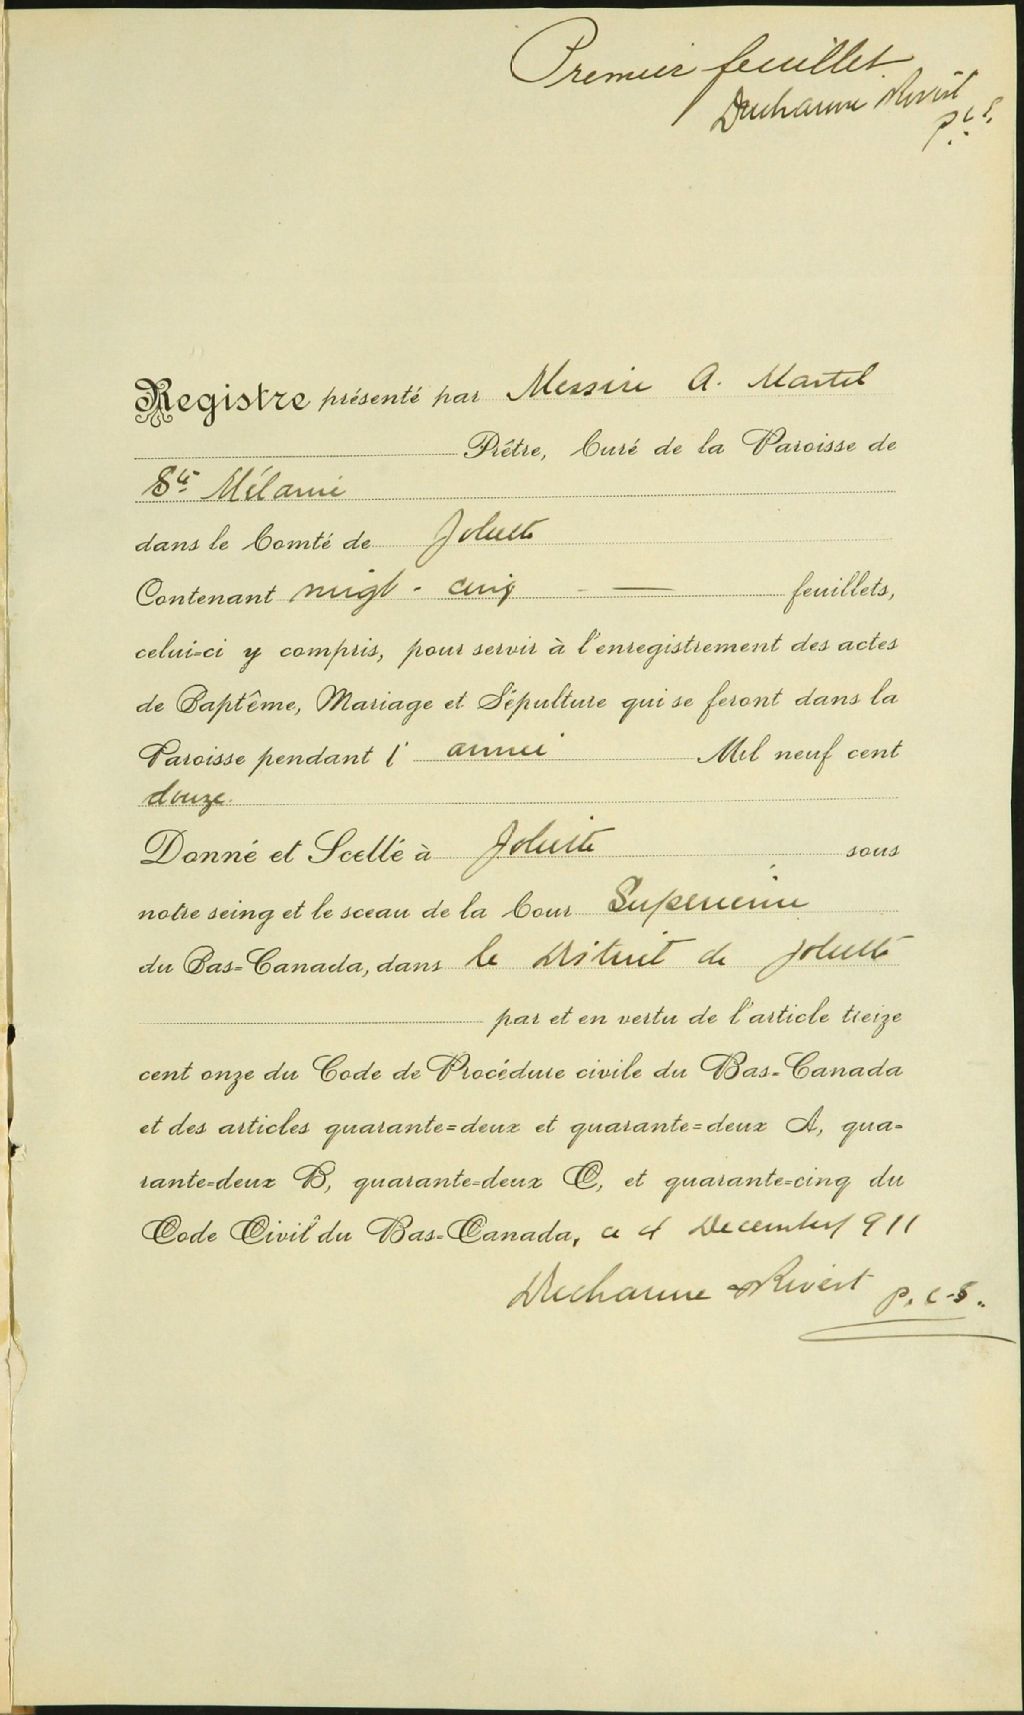 Premier feuillet
Ducharme & Rivest
P.C.S.
Registre présenté par Messire A. Martel
Prêtre, Curé de la Paroisse de
Ste Mélanie
dans le Comté de Joliette
Contenant vingt-cinq — feuillets,
celui-ci y compris, pour servir à l'enregistrement des actes
de Baptême, Mariage et Sépulture qui se feront dans la
Paroisse pendant l'année Mil neuf cent
douze
Donné et Scellé à Joliette sous
notre seing et le sceau de la Cour Superieure
du Bas-Canada, dans le District de Joliette
par et en vertu de l'article treize
cent onze du Code de Procédure civile du Bas-Canada
et des articles quarante-deux et quarante-deux A, qua-
rante-deux B, quarante-deux C, et quarante-cinq du
Code Civil du Bas-Canada, ce 4 Decembre 1911
Ducharme & Rivest P.C.S.